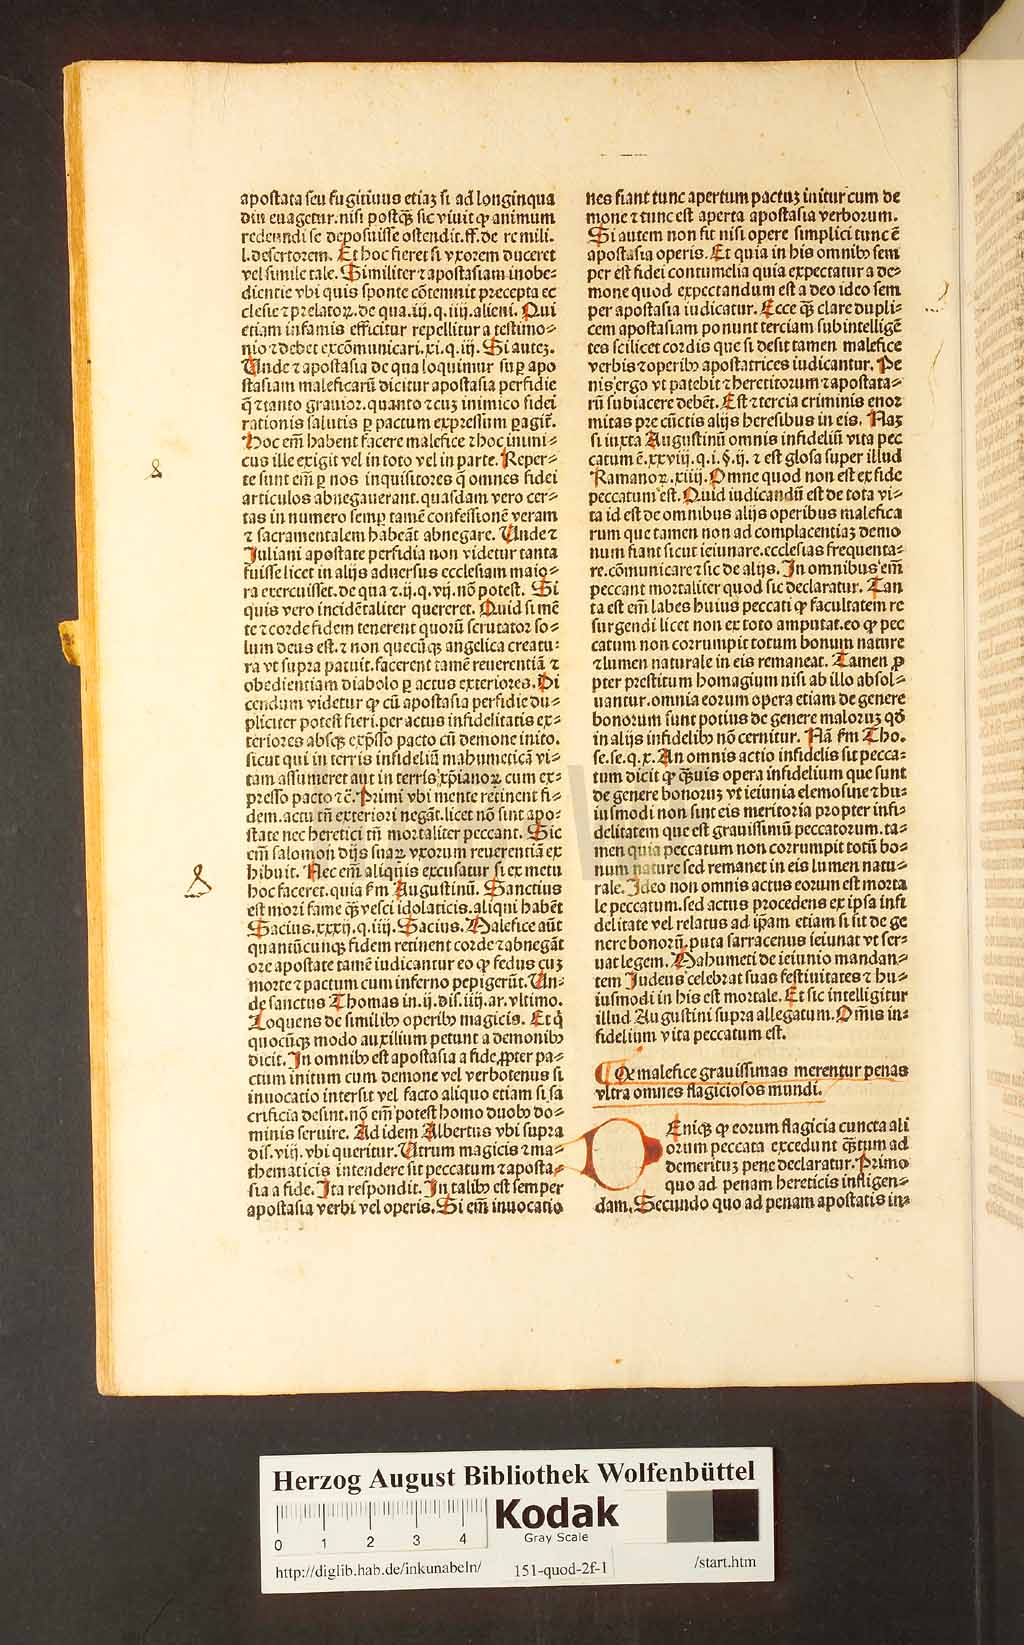 apostata seu fugitiuus etiaꝫ si ad longinqua
diu euagetur. nisi postq̄ꝫ sic viuit ꝙ animum
redeundi se deposuisse ostendit. ff. de re mili.
l. desertorem. Et hoc fieret si vxorem duceret
vel simile tale. Similiter ⁊ apostasiam inobe⸗
dientie vbi quis sponte cōtemnit precepta ec
clesie ⁊ prelatoꝝ. de qua. iij. q. iiij. alieni. Qui
etiam infamis efficitur repellitur a testimo⸗
nio ⁊ debet excōmunicari. xi. q. iij. Si auteꝫ.
Unde ⁊ apostasia de qua loquimur suꝑ apo
stasiam maleficarū dicitur apostasia perfidie
q̄ ⁊ tanto grauior. quanto ⁊ cuꝫ inimico fidei
rationis salutis ꝑ pactum expressum ꝑagit᷑.
Hoc em̄ habent facere malefice ⁊ hoc inimi⸗
cus ille exigit vel in toto vel in parte. Reper⸗
te sunt em̄ ꝑ nos inquisitores q̄ omnes fidei
articulos abnegauerant. quasdam vero cer⸗
tas in numero semꝑ tamē confessionē veram
⁊ sacramentalem habeāt abnegare. Unde ⁊
Juliani apostate perfidia non videtur tanta
fuisse licet in alijs aduersus ecclesiam maio⸗
ra exercuisset. de qua ⁊. ij. q. vij. nō potest. Si
quis vero incidētaliter quereret. Quid si mē
te ⁊ corde fidem tenerent quorū scrutator so⸗
lum deus est. ⁊ non quecūqꝫ angelica creatu⸗
ra vt supra patuit. facerent tamē reuerentiā ⁊
obedientiam diabolo ꝑ actus exteriores. Di
cendum videtur ꝙ cū apostasia perfidie du⸗
pliciter potest fieri. per actus infidelitatis ex⸗
teriores absqꝫ exp̄sso pacto cū demone inito.
sicut qui in terris infideliū mahumeticā vi⸗
tam assumeret aut in terris xp̄ianoꝝ cum ex⸗
presso pacto ⁊c̄. Primi vbi mente retinent fi⸗
dem. actu tn̄ exteriori negāt. licet nō sint apo⸗
state nec heretici tn̄ mortaliter peccant. Sic
em̄ salomon dijs suaꝝ vxorum reuerentiā ex
hibuit. Nec em̄ aliquis excusatur si ex metu
hoc faceret. quia ẜm Augustinū. Sanctius
est mori fame q̄ꝫ vesci idolaticis. aliqui habēt
Sacius. xxxij. q. iiij. Sacius. Malefice aūt
quantūcunqꝫ fidem retinent corde ⁊ abnegāt
ore apostate tamē iudicantur eo ꝙ fedus cuꝫ
morte ⁊ pactum cum inferno pepigerūt. Un⸗
de sanctus Thomas in. ij. dis. iiij. ar. vltimo.
Loquens de similibꝫ operibꝫ magicis. Et q̄
quocūqꝫ modo auxilium petunt a demonibꝫ
dicit. In omnibꝫ est apostasia a fide. ꝓpter pa⸗
ctum initum cum demone vel verbotenus si
inuocatio intersit vel facto aliquo etiam si sa
crificia desint. nō em̄ potest homo duobꝫ do⸗
minis seruire. Ad idem Albertus vbi supra
dis. viij. vbi queritur. Utrum magicis ⁊ ma⸗
thematicis intendere sit peccatum ⁊ aposta⸗
sia a fide. Ita respondit. In talibꝫ est semper
apostasia verbi vel operis. Si em̄ inuocatio
nes fiant tunc apertum pactuꝫ initur cum de
mone ⁊ tunc est aperta apostasia verborum.
Si autem non fit nisi opere simplici tunc ē
apostasia operis. Et quia in his omnibꝫ sem
per est fidei contumelia quia expectatur a de⸗
mone quod expectandum est a deo ideo sem
per apostasia iudicatur. Ecce q̄ꝫ clare dupli⸗
cem apostasiam ponunt terciam subintelligē
tes scilicet cordis que si desit tamen malefice
verbis ⁊ operibꝫ apostatrices iudicantur. Pe
nis ergo vt patebit ⁊ hereticorum ⁊ apostata⸗
rū subiacere debēt. Est ⁊ tercia criminis enor
mitas pre cūctis alijs heresibus in eis. Naꝫ
si iuxta Augustinū omnis infideliū vita pec
catum ē. xxviij. q. i. §. ij. ⁊ est glosa super illud
Ramanoꝝ. xiiij. Omne quod non est ex fide
peccatum est. Quid iudicandū est de tota vi⸗
ta id est de omnibus alijs operibus malefica
rum que tamen non ad complacentiaꝫ demo
num fiant sicut ieiunare. ecclesias frequenta⸗
re. cōmunicare ⁊ sic de alijs. In omnibus em̄
peccant mortaliter quod sic declaratur. Tan
ta est em̄ labes huius peccati ꝙ facultatem re
surgendi licet non ex toto amputat. eo ꝙ pec
catum non corrumpit totum bonum nature
⁊ lumen naturale in eis remaneat. Tamen ꝓ
pter prestitum homagium nisi ab illo absol⸗
uantur. omnia eorum opera etiam de genere
bonorum sunt potius de genere maloruꝫ qð
in alijs infidelibꝫ nō cernitur. Nā ẜm Tho.
se. se. q. x. An omnis actio infidelis sit pecca⸗
tum dicit ꝙ q̄ꝫuis opera infidelium que sunt
de genere bonoruꝫ vt ieiunia elemosine ⁊ hu⸗
iusmodi non sint eis meritoria propter infi⸗
delitatem que est grauissimū peccatorum. ta⸗
men quia peccatum non corrumpit totū bo⸗
num nature sed remanet in eis lumen natu⸗
rale. Ideo non omnis actus eorum est morta
le peccatum. sed actus procedens ex ipsa infi
delitate vel relatus ad ip̄am etiam si sit de ge
nere bonorū. puta sarracenus ieiunat vt ser⸗
uat legem. Mahumeti de ieiunio mandan⸗
tem Judeus celebrat suas festiuitates ⁊ hu⸗
iusmodi in his est mortale. Et sic intelligitur
illud Augustini supra allegatum. Om̄is in⸗
fidelium vita peccatum est.
¶ Qꝫ malefice grauissimas merentur penas
vltra omnes flagiciosos mundi.
DEniqꝫ ꝙ eorum flagicia cuncta ali
orum peccata excedunt q̄ꝫtum ad
demerituꝫ pene declaratur. Primo
quo ad penam hereticis infligen⸗
dam. Secundo quo ad penam apostatis in⸗
Herzog August Bibliothek Wolfenbüttel
0 1 2 3 4
Kodak
Gray Scale
http://diglib.hab.de/inkunabeln/ 151-quod-2f-1 /start.htm